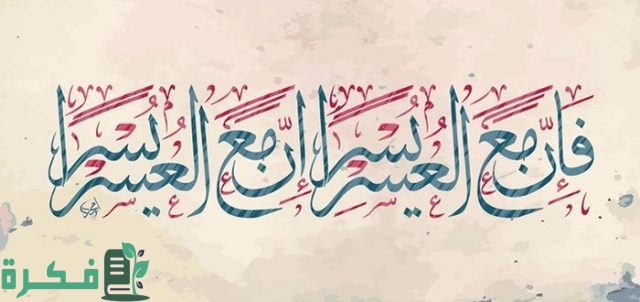 فَإِنَّ مَعَ الْعُسْرِ يُسْرًا إِنَّ مَعَ الْعُسْرِ يُسْرًا
فكرة